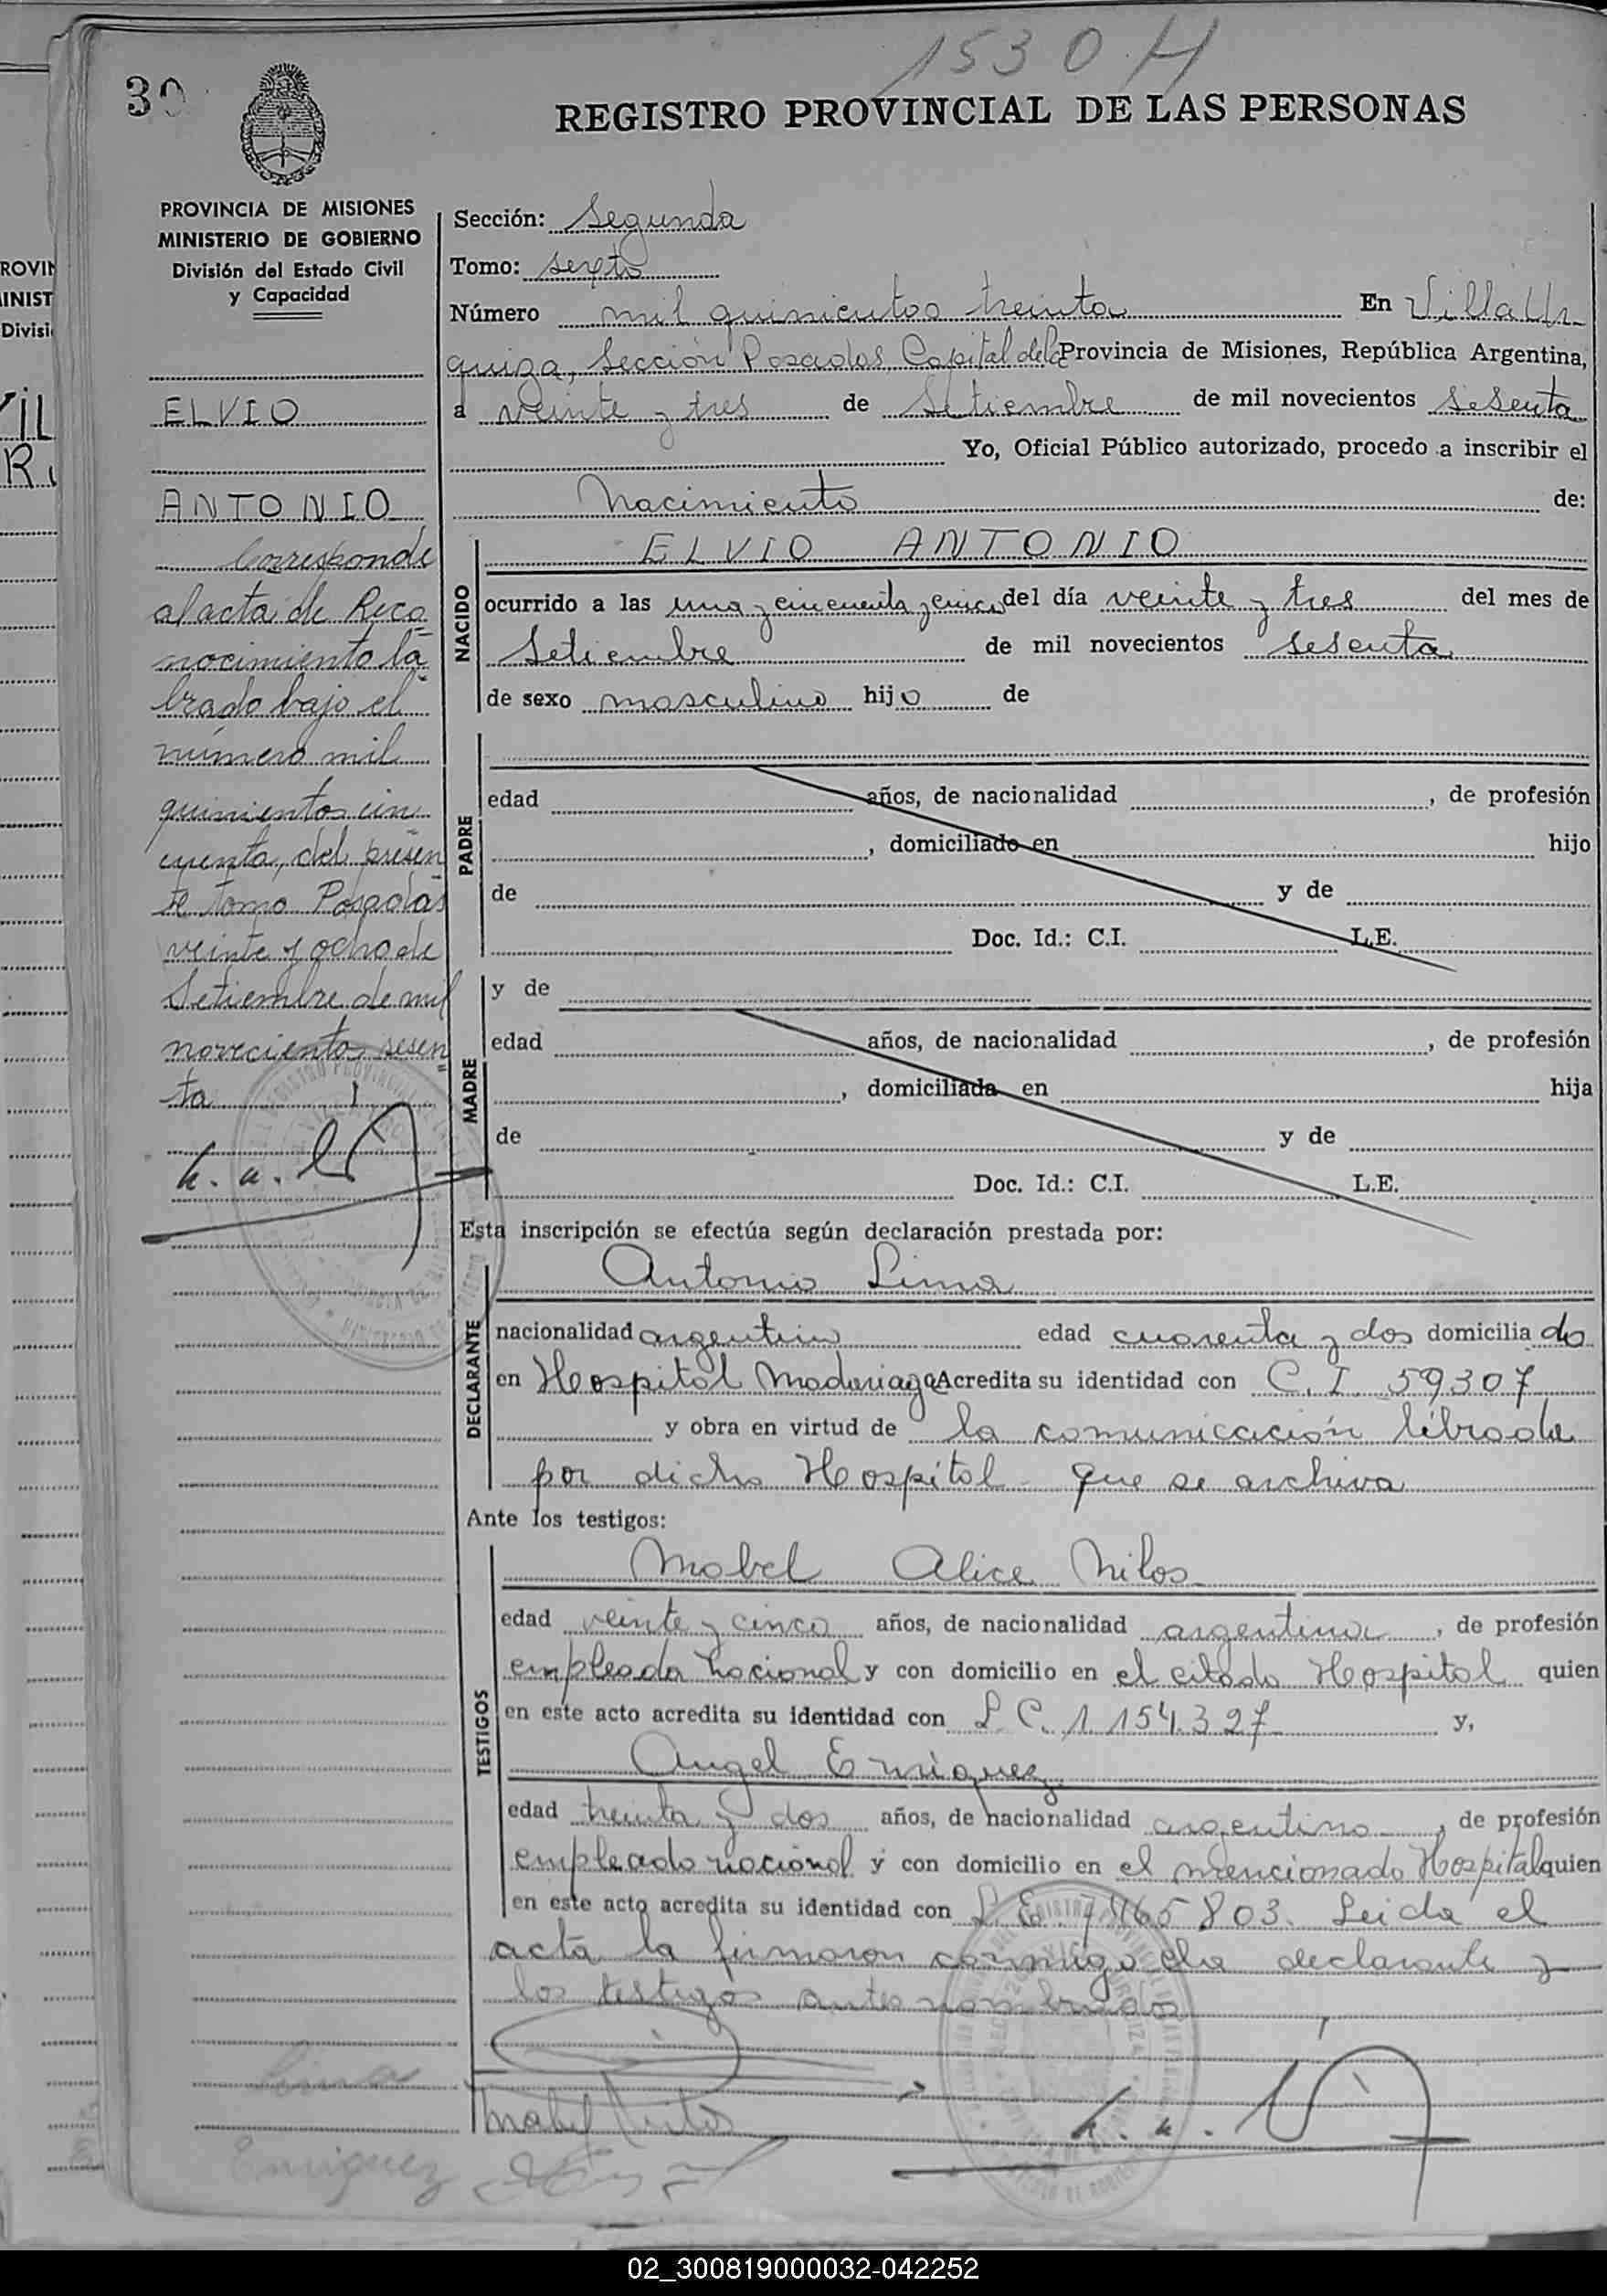 1530 H
30
REGISTRO PROVINCIAL DE LAS PERSONAS
PROVINCIA DE MISIONES
MINISTERIO DE GOBIERNO
División del Estado Civil
y Capacidad
ELVIO
ANTONIO
Corresponde
al acta de Reco
nocimiento la
brado bajo el
número mil
quinientos cin
cuenta, del presen
te tomo Posadas
veinte y ocho de
Setiembre de mil
novecientos sesen
ta
Sección: Segunda
Tomo: sexto
Número mil quinientos treinta En Villa Ur-
quiza, Sección Posadas Capital de la Provincia de Misiones, República Argentina,
a veinte y tres de Setiembre de mil novecientos sesenta
Yo, Oficial Público autorizado, procedo a inscribir el
Nacimiento de:
NACIDO
ELVIO ANTONIO
ocurrido a las una y cincuenta y cinco del día veinte y tres del mes de
Setiembre de mil novecientos sesenta
de sexo masculino hijo de
PADRE
edad años, de nacionalidad , de profesión
, domiciliado en hijo
de y de
Doc. Id.: C.I. L.E.
MADRE
y de
edad años, de nacionalidad , de profesión
, domiciliada en hija
de y de
Doc. Id.: C.I. L.E.
Esta inscripción se efectúa según declaración prestada por:
DECLARANTE
Antonio Lima
nacionalidad argentino edad cuarenta y dos domicilia do
en Hospital Madariaga Acredita su identidad con C. I. 59307
y obra en virtud de la comunicación librada
por dicho Hospital que se archiva
Ante los testigos:
TESTIGOS
Mabel Alice Nilos
edad veinte y cinco años, de nacionalidad argentina , de profesión
empleada nacional y con domicilio en el citado Hospital quien
en este acto acredita su identidad con L. C. 1.154.327 y,
Angel Enriquez
edad treinta y dos años, de nacionalidad argentino , de profesión
empleado nacional y con domicilio en el mencionado Hospital quien
en este acto acredita su identidad con L. E. 7465803. Leida el
acta la firmaron conmigo el declarante y
los testigos antes nombrados
Lima
Enriquez
02_300819000032-042252